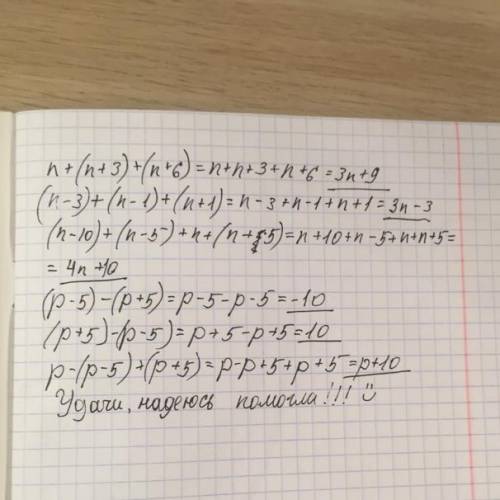 n+(n+3)+(n+6)=n+n+3+n+6=3n+9
(n-3)+(n-1)+(n+1)=n-3+n-1+n+1=3n-3
(n-10)+(n-5)+n+(n+5)=n+10+n-5+n+n+5=
=4n+10
(p-5)-(p+5)=p-5-p-5=-10
(p+5)-(p-5)=p+5-p+5=10
p-(p-5)+(p+5)=p-p+5+p+5=p+10
Удачи, надеюсь помогла!!! ☺